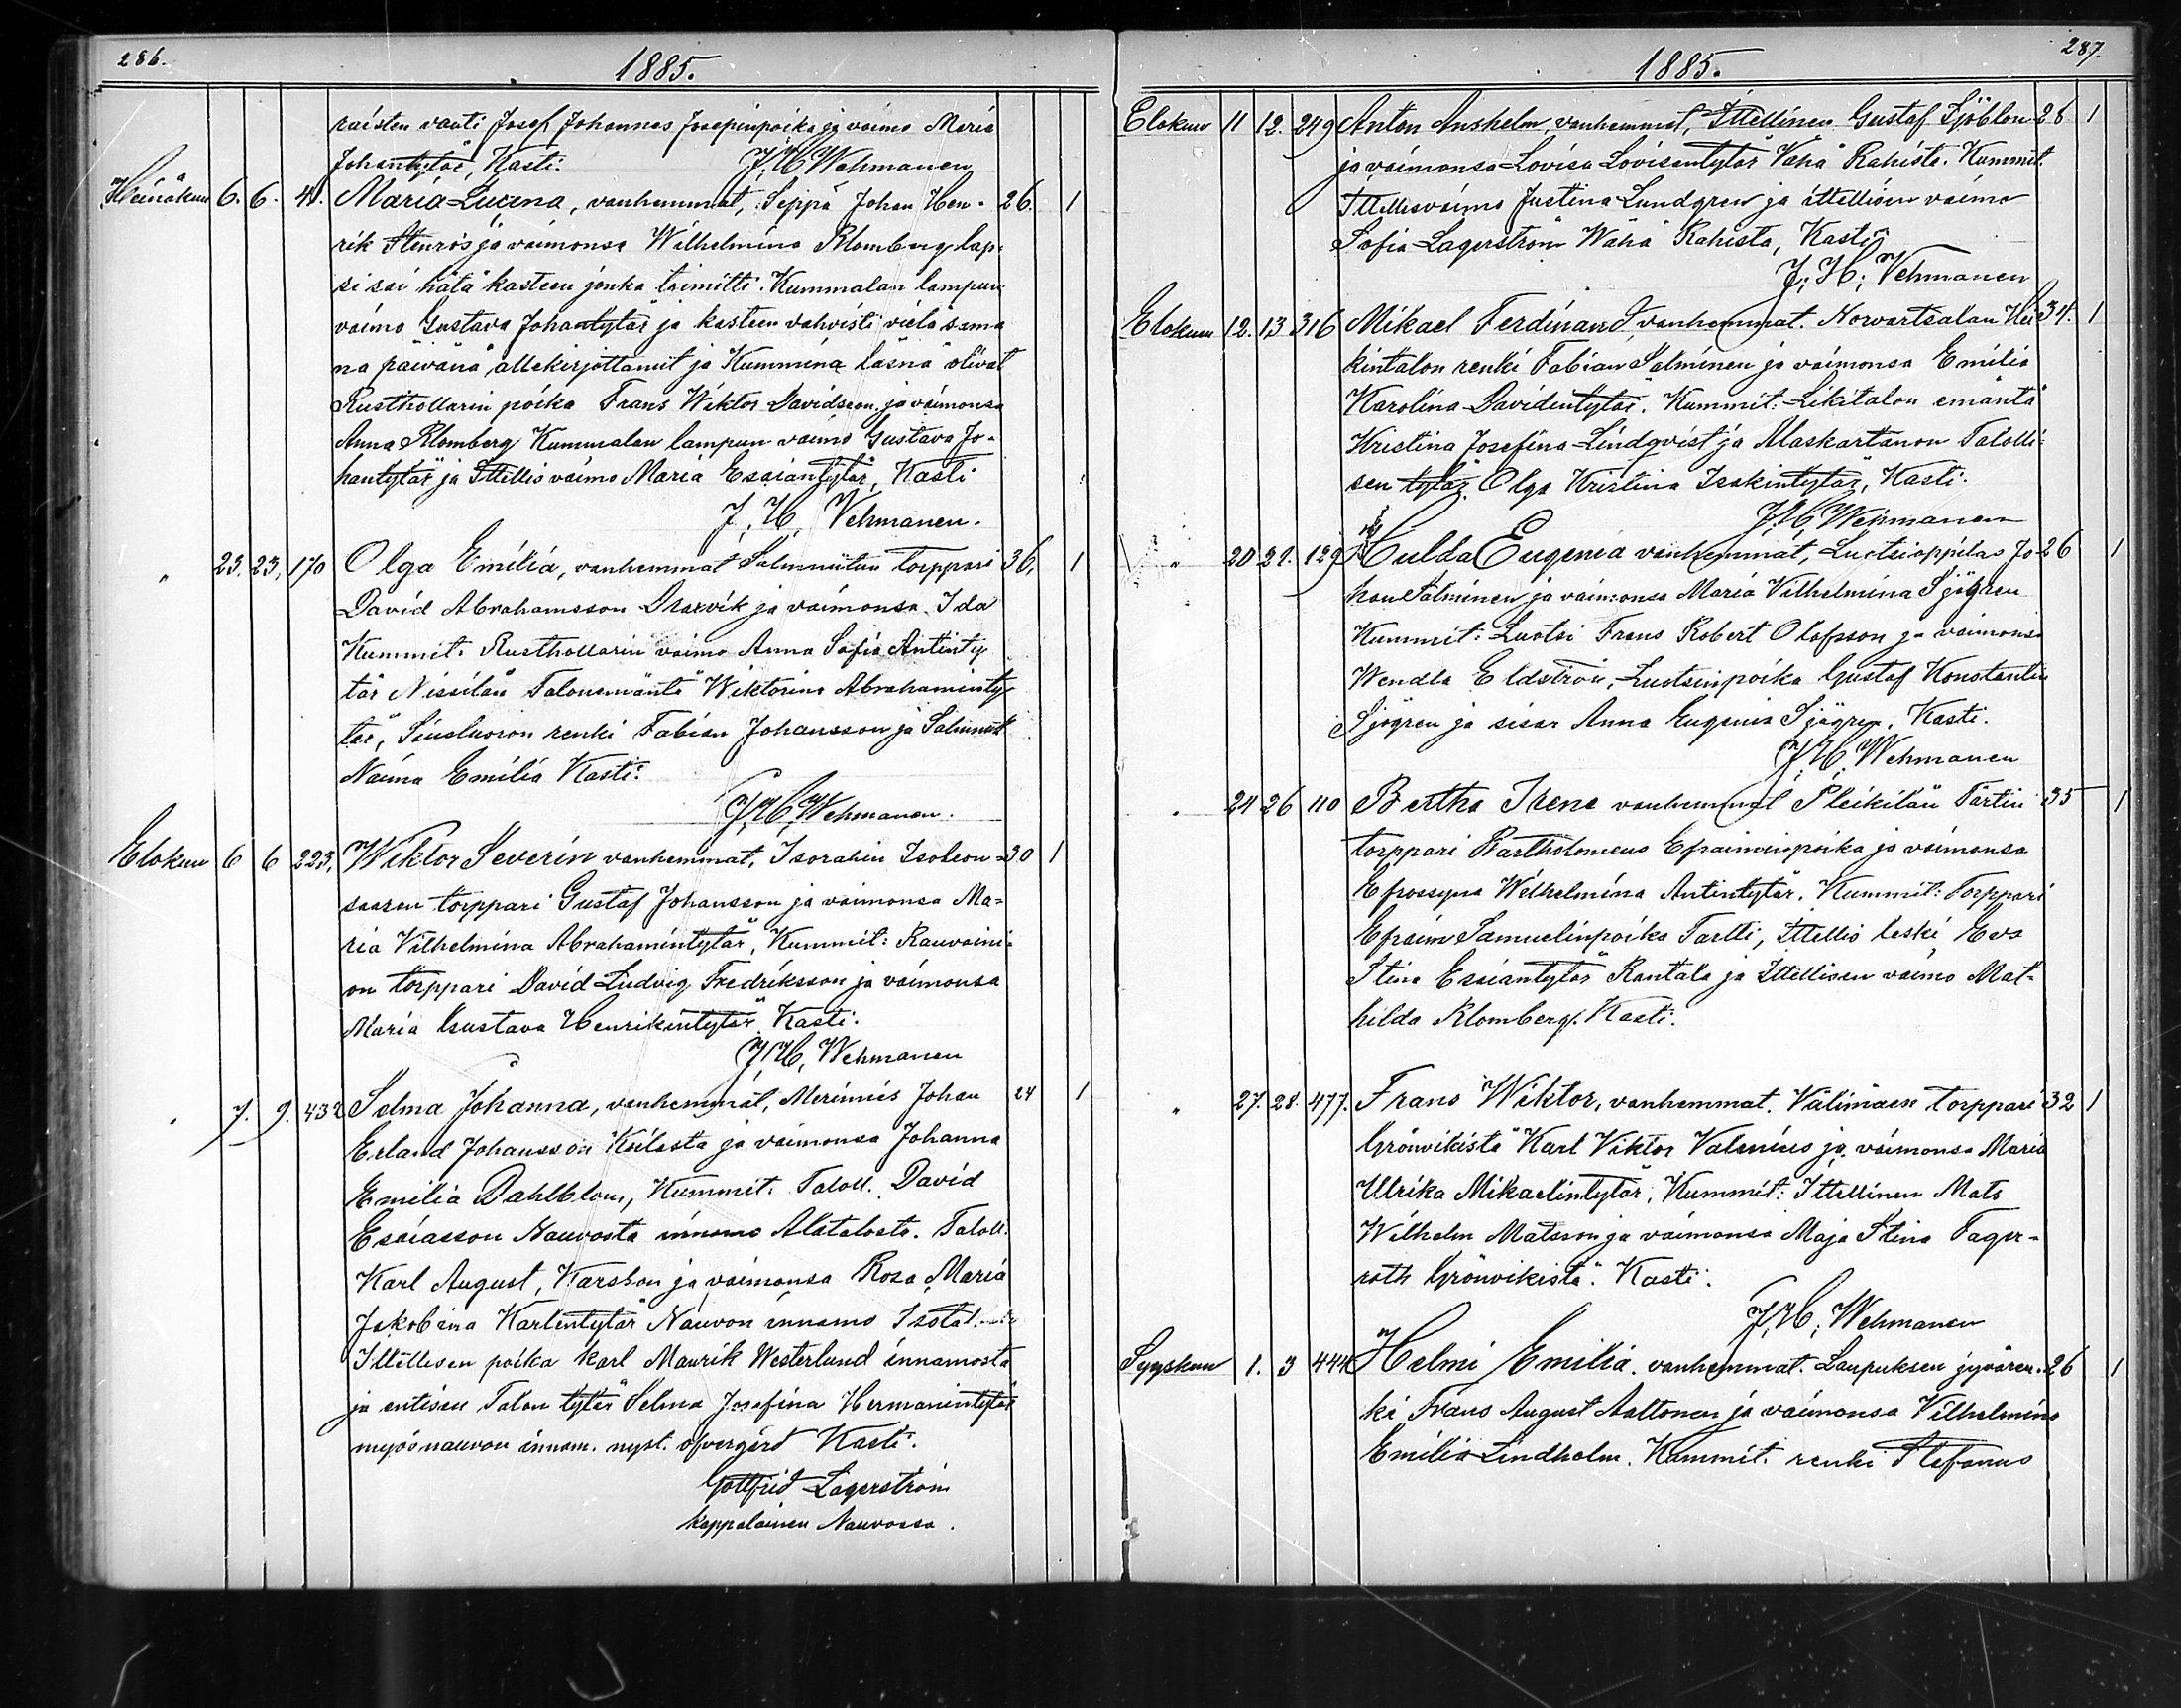 286.
1885.
raisten vaati Josef Johannes Josepinpoika ja vaimo Maria
Johantytär, Kasti: J. H. Wehmanen
Heinäkuu 6. 6. 41. Maria Lucina, vanhemmat, Seppä Johan Hen- 26. 1
rik Stenros ja vaimonsa Wilhelmina Blomberg lap-
si sai hätä kasteen jonka toimitti Kummalan lampun
vaimo Gustava Johantytär ja kasteen vahvisti vielä sama
na päivänä allekirjottanut ja Kummina läsnä olivat
Rusthollarin poika Frans Wiktor Davidsson ja vaimonsa
Anna Blomberg Kummalan lampun vaimo Gustava Jo-
hantytär ja Ittellis vaimo Maria Esaiantytär, Kasti
J. H. Vehmanen.
" 23. 23. 170 Olga Emilia, vanhemmat Salmniitun torppari 36. 1
David Abrahamsson ja vaimonsa Ida
Kummit: Rusthollarin vaimo Anna Sofia Antinty
tär Nissilän Talonemäntä Wiktorina Abrahaminty
tär, renki Fabian Johansson ja
Naima Emilia Kasti:
J. H. Wehmanen.
Elokuu 6 6 223. Wiktor Severin vanhemmat, Isorahin 30 1
saaren torppari Gustaf Johansson ja vaimonsa Ma=
ria Vilhelmina Abrahamintytär, Kummit: Rauvaini-
on torppari David Ludvig Fredriksson ja vaimonsa
Maria Gustava Henrikintytär Kasti:
J. H. Wehmanen
" 7. 9. 432 Selma Johanna, vanhemmat, Merimies Johan 24 1
Erland Johansson Keilasta ja vaimonsa Johanna
Emilia Dahlblom, Kummit: Taloll. David
Esaiasson Nauvosta innamo Alatalosta. Taloll.
Karl August, Karsson ja vaimonsa Rosa Maria
Jakobina Karlentytär Nauvon innamo
Ittellisen poika Karl Maurik Westerlund innamosta
ja entisen Talon tytär Selma Josefina Hermanintytär
myös nauvon innam. nyst. öfvergård Kasti.
Gottfrid Lagerström
kappalainen Nauvossa.
287.
1885.
Elokuu 11 12. 249 Anton Anshelm, vanhemmat, Ittellinen Gustaf Sjöblom 28 1
ja vaimonsa Lovisa Lovisantytär Vähä Rahista. Kummit.
Ittellisvaimo Justina Lundgren ja ittellisen vaimo
Sofia Lagerström Wähä Rahista, Kasti:
J. H. Vehmanen
Elokuu 12. 13 316 Mikael Ferdinand, vanhemmat. Norvartsalan Hei 34. 1
kintalon renki Fabian Salminen ja vaimonsa Emilia
Karolina Davidintytär. Kummit: Likitalon emäntä
Kristina Josefina Lindqvist ja Alaskartanon Talolli=
sen tytär Olga Kristina Isakintytär, Kasti.
J. H. Wehmanen
" 20 21. 129 Hulda Eugenia vanhemmat, Luotsioppilas Jo 26 1
han Salminen ja vaimonsa Maria Vilhelmina Sjögren
Kummit: Luotsi Frans Robert Olofsson ja vaimonsa
Wendla Eldström, Luotsinpoika Gustaf Konstantin
Sjögren ja sisar Anna Eugenia Sjögren, Kasti.
J. H. Wehmanen
" 24 26 110 Bertha Irene vanhemmat Pleikilän Tartin 35 1
torppari Bartholomeus Efraiminpoika ja vaimonsa
Efrossyna Wilhelmina Antintytär. Kummit: Torppari
Efraim Samuelinpoika Tartti, Ittellis leski Eva
Stina Esaiantytär Rantala ja Ittellisen vaimo Mat-
hilda Blomberg. Kasti.
" 27. 28. 477. Frans Wiktor, vanhemmat. Välimäen torppari 32 1
Grönvikistä Karl Viktor Valenius ja vaimonsa Maria
Ulrika Mikaelintytär, Kummit: Ittellinen Mats
Wilhelm Matsson ja vaimonsa Maja Stina Fager-
roth Grönvikistä. Kasti:
J. H. Wehmanen
Syyskuu 1. 3 444 Helmi Emilia. vanhemmat. Laupuksen jyvären- 26 1
ki Frans August Aaltonen ja vaimonsa Vilhelmina
Emilia Lindholm. Kummit: renki Stefanus